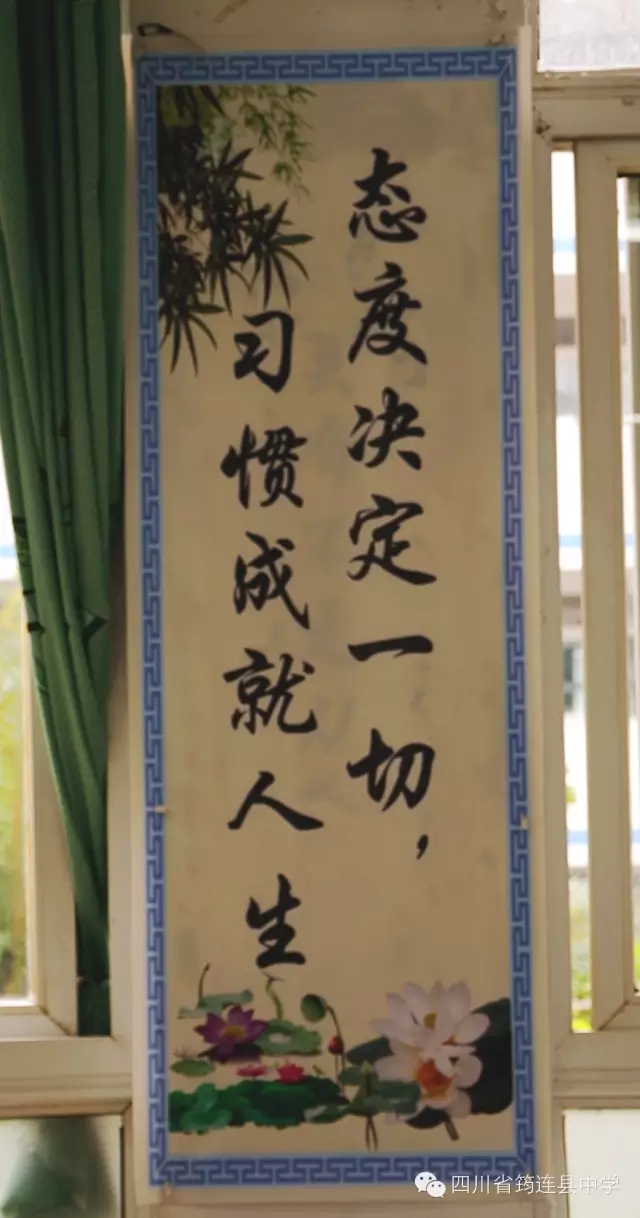 态度决定一切，
习惯成就人生
四川省筠连县中学